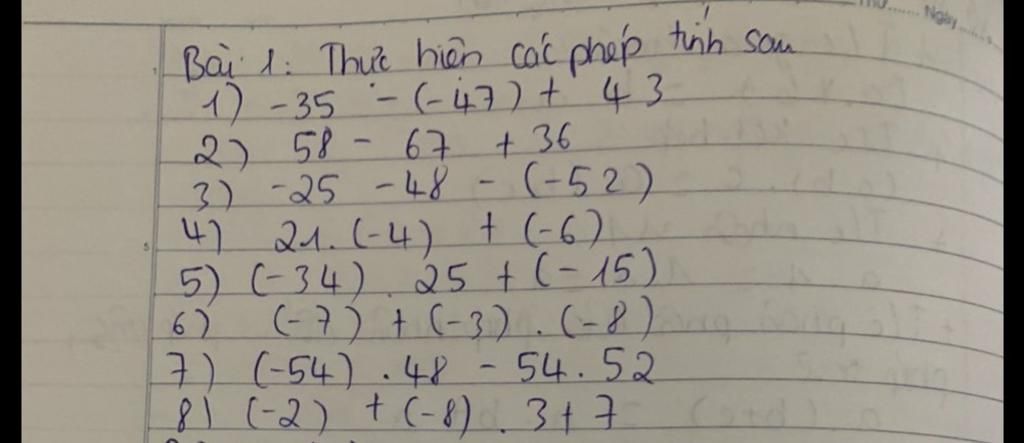 Thứ...... Ngày......
Bài 1: Thực hiện các phép tính sau
1) -35 - (-47) + 43
2) 58 - 67 + 36
3) -25 - 48 - (-52)
4) 21.(-4) + (-6)
5) (-34) . 25 + (-15)
6) (-7) + (-3) . (-8)
7) (-54) . 48 - 54 . 52
8) (-2) + (-8) . 3 + 7